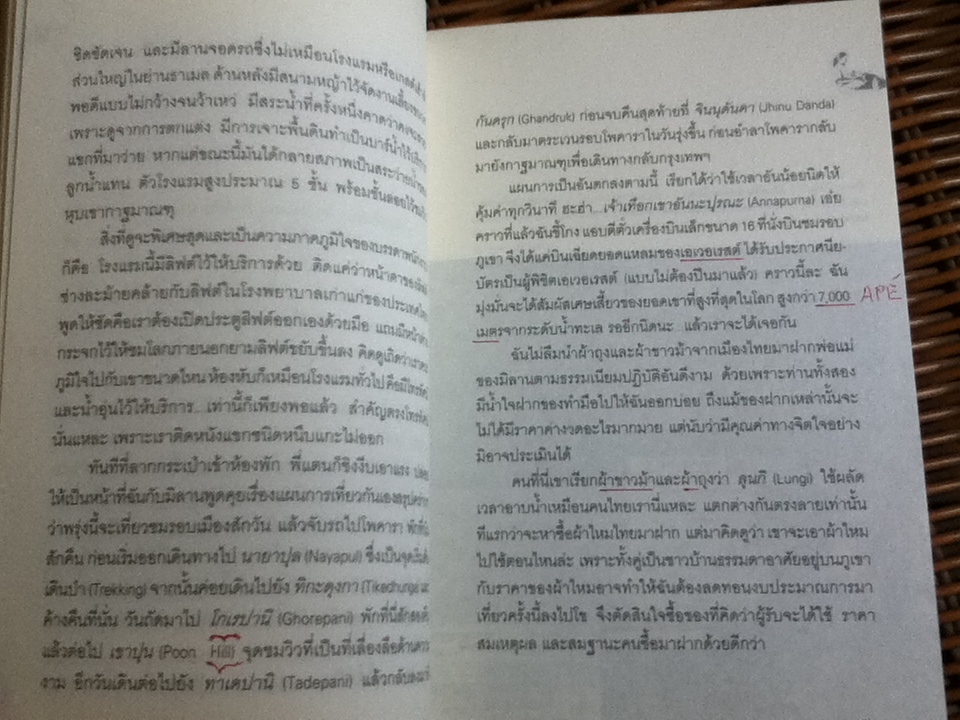 ชิดชัดเจน และมีลานจอดรถซึ่งไม่เหมือนโรงแรมหรือเกสต์
ส่วนใหญ่ในย่านธาเมล ด้านหลังมีสนามหญ้าไว้จัดงานเลี้ยง
พอดีแบบไม่กว้างจนว้าเหว่ มีสระน้ำที่ครั้งหนึ่งคาดว่า
เพราะดูจากการตกแต่ง มีการเจาะพื้นดินทำเป็นบาร์น้ำไว้
แขกที่มาว่าย หากแต่ขณะนี้มันได้กลายสภาพเป็นสระว่าย
ลูกน้ำแทน ตัวโรงแรมสูงประมาณ 5 ชั้น พร้อมชั้นลอยไว้
หุบเขากาฐมาณฑุ
สิ่งที่ดูจะพิเศษสุดและเป็นความภาคภูมิใจของบรรดาพนักงาน
ก็คือ โรงแรมนี้มีลิฟต์ไว้ให้บริการด้วย ติดแค่ว่าหน้าตาของ
ช่างละม้ายคล้ายกับลิฟต์ในโรงพยาบาลเก่าแก่ของประเทศ
พูดให้ชัดคือเราต้องเปิดประตูลิฟต์ออกเองด้วยมือ แถมมีหน้า
กระจกไว้ให้ชมโลกภายนอกยามลิฟต์ขยับขึ้นลง คิดดูเถิดว่าเรา
ภูมิใจไปกับเขาขนาดไหน ห้องหับก็เหมือนโรงแรมทั่วไป คือมีโทรทัศน์
และน้ำอุ่นไว้ให้บริการ...เท่านี้ก็เพียงพอแล้ว สำคัญตรงโทรทัศน์
นั่นแหละ เพราะเราติดหนังแขกชนิดหนึบแกะไม่ออก
ทันทีที่ลากกระเป๋าเข้าห้องพัก พี่แตนก็ชิงงีบเอาแรง ปล่อย
ให้เป็นหน้าที่ฉันกับมิลานพูดคุยเรื่องแผนการเที่ยวกันเองสรุปคร่าว
ว่าพรุ่งนี้จะเที่ยวชมรอบเมืองสักวัน แล้วจับรถไปโพคารา พัก
สักคืน ก่อนเริ่มออกเดินทางไป นายาปุล (Nayapul) ซึ่งเป็นจุดเริ่มต้น
เดินป่า (Trekking) จากนั้นค่อยเดินไปยัง ทิกะดุงกา (Tikedhunga)
ค้างคืนที่นั่น วันถัดมาไป โกเรปานิ (Ghorepani) พักที่นี่สักคืน
แล้วต่อไป เขาปุน (Poon Hill) จุดชมวิวที่เป็นที่เลื่องลือด้านความ
งาม อีกวันเดินต่อไปยัง ทาเดปานิ (Tadepani) แล้วกลับลงมา
กันดรุก (Ghandruk) ก่อนจบคืนสุดท้ายที่ จินนุดันดา (Jhinu Danda)
และกลับมาตระเวนรอบโพคาราในวันรุ่งขึ้น ก่อนอำลาโพคารากลับ
มายังกาฐมาณฑุเพื่อเดินทางกลับกรุงเทพฯ
แผนการเป็นอันตกลงตามนี้ เรียกได้ว่าใช้เวลาอันน้อยนิดให้
คุ้มค่าทุกวินาที ฮะฮ่า...เจ้าเทือกเขาอันนะปุรณะ (Annapurna) เอ๋ย
คราวที่แล้วฉันขี้โกง แอบตีตั๋วเครื่องบินเล็กขนาด 16 ที่นั่งบินชมรอบ
ภูเขา จึงได้แค่บินเฉียดยอดแหลมของเอเวอเรสต์ ได้รับประกาศนีย-
บัตรเป็นผู้พิชิตเอเวอเรสต์ (แบบไม่ต้องปีนมาแล้ว) คราวนี้ละ ฉัน
มุ่งมั่นจะได้สัมผัสเศษเสี้ยวของยอดเขาที่สูงที่สุดในโลก สูงกว่า 7,000 APE
เมตรจากระดับน้ำทะเล รออีกนิดนะ...แล้วเราจะได้เจอกัน
ฉันไม่ลืมนำผ้าถุงและผ้าขาวม้าจากเมืองไทยมาฝากพ่อแม่
ของมิลานตามธรรมเนียมปฏิบัติอันดีงาม ด้วยเพราะท่านทั้งสอง
มีน้ำใจฝากของทำมือไปให้ฉันออกบ่อย ถึงแม้ของฝากเหล่านั้นจะ
ไม่ได้มีราคาค่างวดอะไรมากมาย แต่นับว่ามีคุณค่าทางจิตใจอย่าง
มิอาจประเมินได้
คนที่นี่เขาเรียกผ้าขาวม้าและผ้าถุงว่า ลุนกิ (Lungi) ใช้ผลัด
เวลาอาบน้ำเหมือนคนไทยเรานี่แหละ แตกต่างกันตรงลายเท่านั้น
ทีแรกว่าจะหาซื้อผ้าไหมไทยมาฝาก แต่มาคิดดูว่า เขาจะเอาผ้าไหม
ไปใช้ตอนไหนล่ะ เพราะทั้งคู่เป็นชาวบ้านธรรมดาอาศัยอยู่บนภูเขา
กับราคาของผ้าไหมอาจทำให้ฉันต้องลดทอนงบประมาณการมา
เที่ยวครั้งนี้ลงไปโข จึงตัดสินใจซื้อของที่คิดว่าผู้รับจะได้ใช้ ราคา
สมเหตุผล และสมฐานะคนซื้อมาฝากด้วยดีกว่า